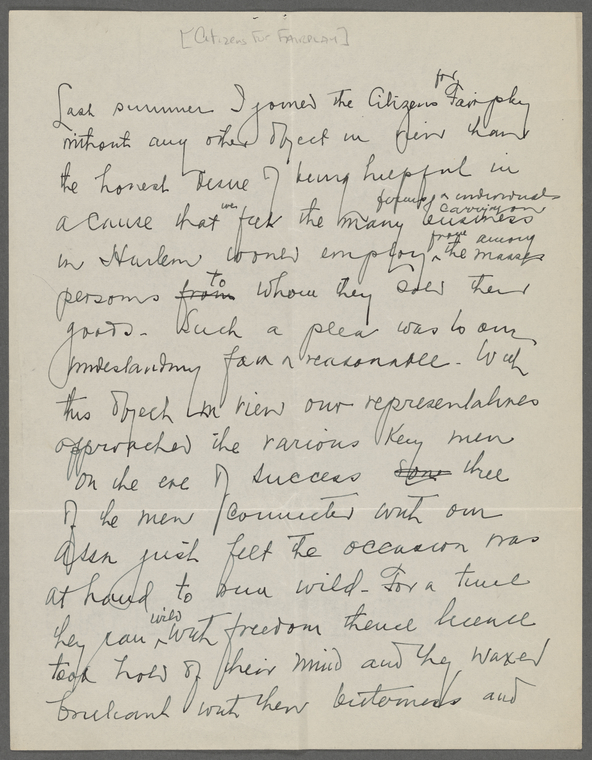 [Citizens For Fairplay]
Last summer I joined the Citizens for Fairplay
without any other object in view than
the honest desire of being helpful in
firms individuals
a cause that we feel the many carrying on business
in Harlem would employ from among the masses
persons from to whom they sold their
goods - Such a plea was to our
understanding fair & reasonable - With
this object in view our representatives
approached the various Key men
On the eve of success some three
of the men connected with our
Assn just felt the occasion was
at hand to run wild - For a time
they ran wild with freedom thence license
took hold of their mind and they waxed
brilliant with their bitterness and